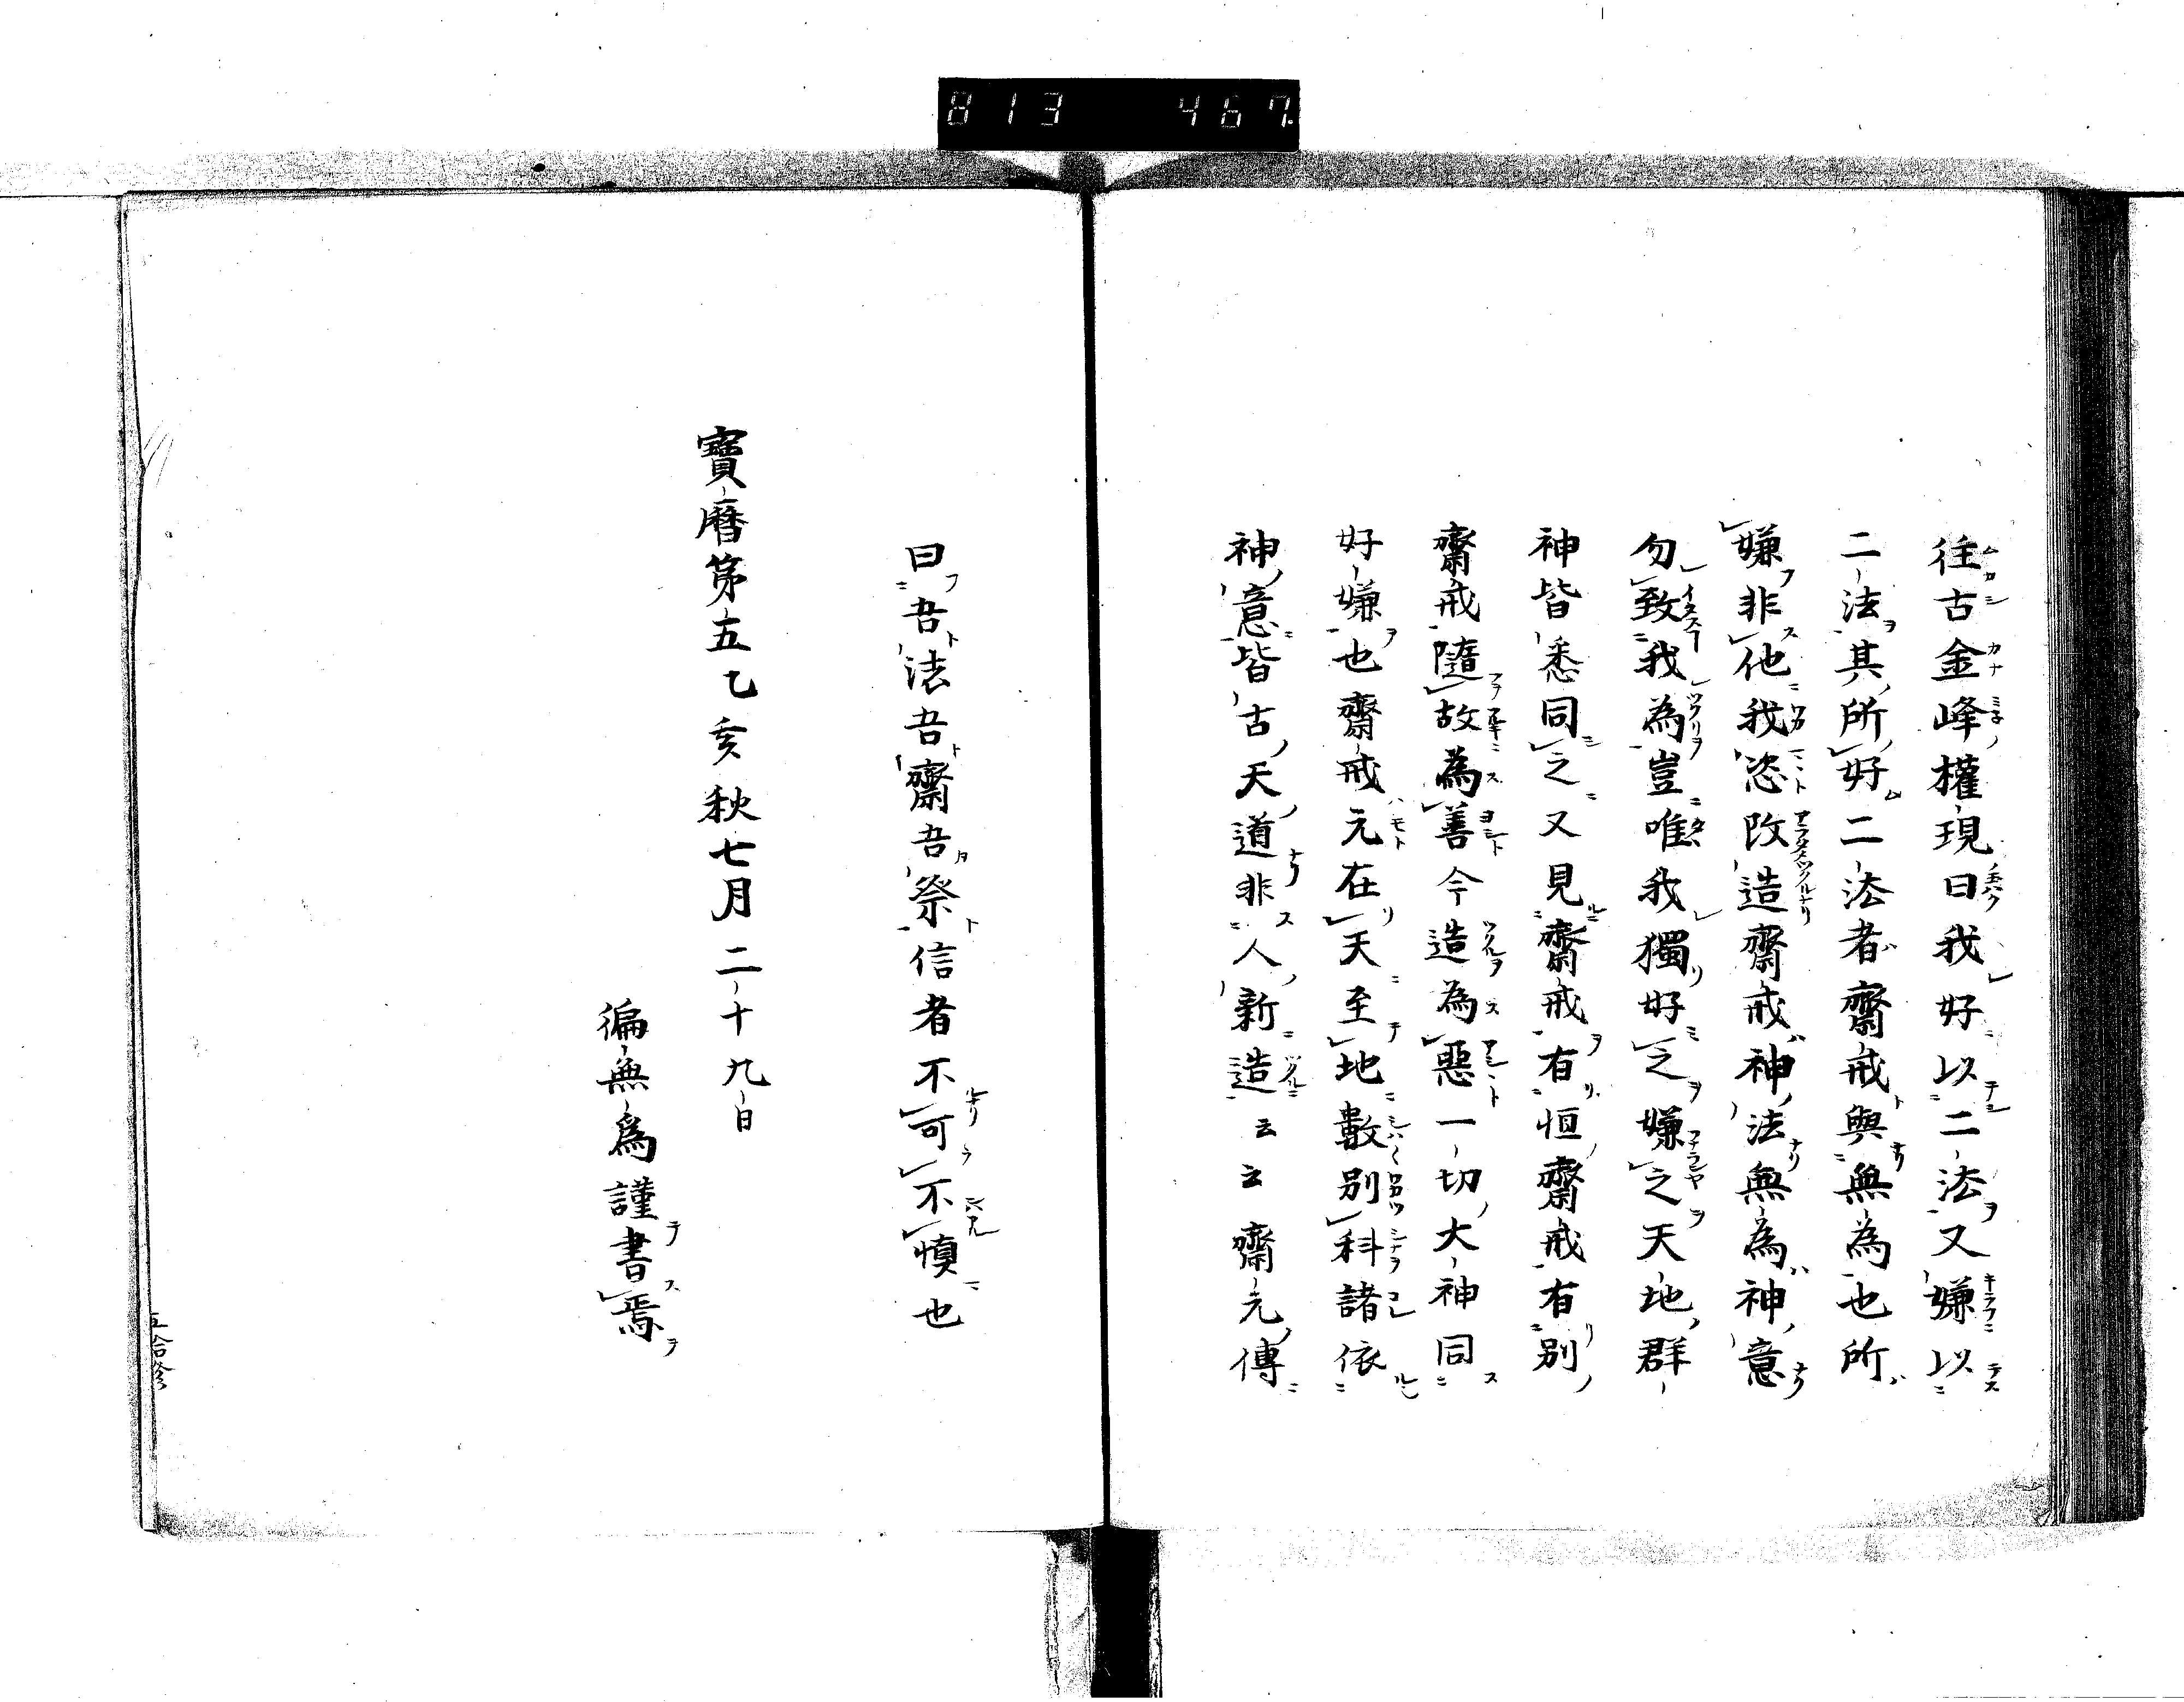 813 467
往古金峰權現曰我好以二法又嫌以
二法其所好二法者齋戒與無為也所
嫌非他我恣改造齋戒神法無為神意
勿致我為豈唯我獨好之嫌之天地群
神皆悉同之又見齋戒有恒齋戒有別
齋戒隨故為善今造為惡一切大神同
好嫌也齋戒元在天至地數別科諸依
神意皆古天道非人新造云云齋元傳
曰吾法吾齋吾祭信者不可不慎也
寶曆第五乙亥秋七月二十九日
徧無為謹書焉